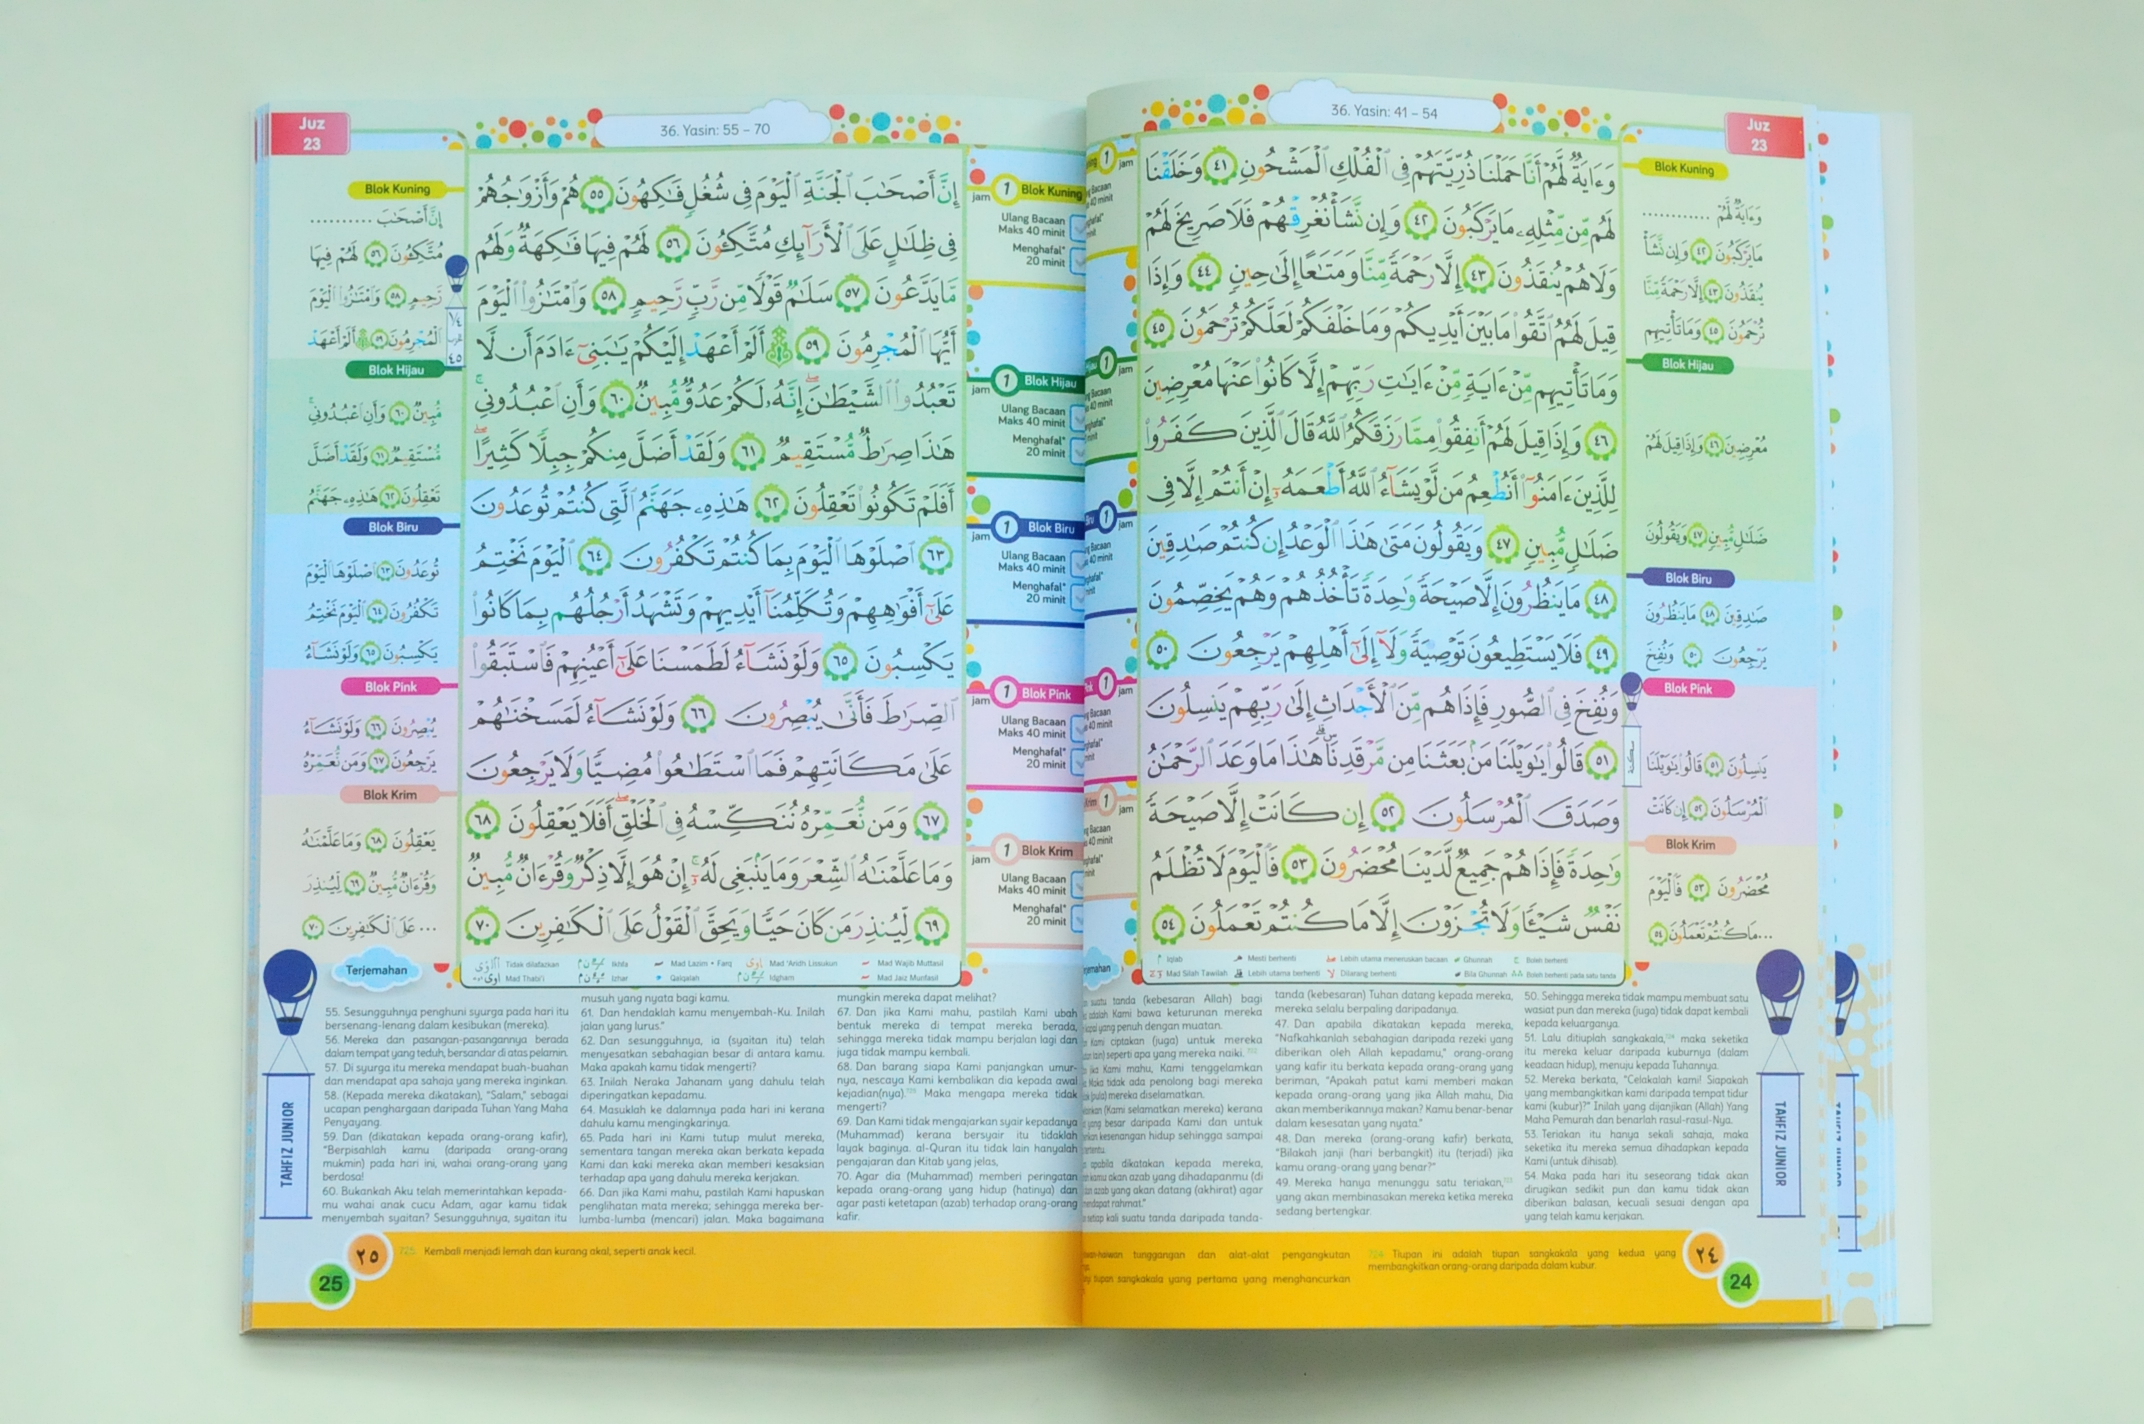 36. Yasin: 41 – 54
Juz
23
وَءَايَةٌ لَّهُمْ أَنَّا حَمَلْنَا ذُرِّيَّتَهُمْ فِي الْفُلْكِ الْمَشْحُونِ ٤١ وَخَلَقْنَا
لَهُم مِّن مِّثْلِهِ مَا يَرْكَبُونَ ٤٢ وَإِن نَّشَأْ نُغْرِقْهُمْ فَلَا صَرِيخَ لَهُمْ
وَلَا هُمْ يُنقَذُونَ ٤٣ إِلَّا رَحْمَةً مِّنَّا وَمَتَاعًا إِلَىٰ حِينٍ ٤٤ وَإِذَا
قِيلَ لَهُمُ اتَّقُوا مَا بَيْنَ أَيْدِيكُمْ وَمَا خَلْفَكُمْ لَعَلَّكُمْ تُرْحَمُونَ ٤٥
وَمَا تَأْتِيهِم مِّنْ ءَايَةٍ مِّنْ ءَايَٰتِ رَبِّهِمْ إِلَّا كَانُوا عَنْهَا مُعْرِضِينَ
٤٦ وَإِذَا قِيلَ لَهُمْ أَنفِقُوا مِمَّا رَزَقَكُمُ اللَّهُ قَالَ الَّذِينَ كَفَرُوا
لِلَّذِينَ ءَامَنُوا أَنُطْعِمُ مَن لَّوْ يَشَاءُ اللَّهُ أَطْعَمَهُ إِنْ أَنتُمْ إِلَّا فِي
ضَلَٰلٍ مُّبِينٍ ٤٧ وَيَقُولُونَ مَتَىٰ هَٰذَا الْوَعْدُ إِن كُنتُمْ صَٰدِقِينَ
٤٨ مَا يَنظُرُونَ إِلَّا صَيْحَةً وَٰحِدَةً تَأْخُذُهُمْ وَهُمْ يَخِصِّمُونَ
٤٩ فَلَا يَسْتَطِيعُونَ تَوْصِيَةً وَلَا إِلَىٰ أَهْلِهِمْ يَرْجِعُونَ ٥٠
وَنُفِخَ فِي الصُّورِ فَإِذَا هُم مِّنَ الْأَجْدَاثِ إِلَىٰ رَبِّهِمْ يَنسِلُونَ
٥١ قَالُوا يَٰوَيْلَنَا مَن بَعَثَنَا مِن مَّرْقَدِنَا هَٰذَا مَا وَعَدَ الرَّحْمَٰنُ
وَصَدَقَ الْمُرْسَلُونَ ٥٢ إِن كَانَتْ إِلَّا صَيْحَةً
وَٰحِدَةً فَإِذَا هُمْ جَمِيعٌ لَّدَيْنَا مُحْضَرُونَ ٥٣ فَالْيَوْمَ لَا تُظْلَمُ
نَفْسٌ شَيْئًا وَلَا تُجْزَوْنَ إِلَّا مَا كُنتُمْ تَعْمَلُونَ ٥٤
Blok Kuning
وَءَايَةٌ لَّهُمْ ............
مَا يَرْكَبُونَ ٤٢ وَإِن نَّشَأْ
يُنقَذُونَ ٤٣ إِلَّا رَحْمَةً مِّنَّا
تُرْحَمُونَ ٤٥ وَمَا تَأْتِيهِم
Blok Hijau
مُعْرِضِينَ ٤٦ وَإِذَا قِيلَ لَهُمْ
ضَلَٰلٍ مُّبِينٍ ٤٧ وَيَقُولُونَ
Blok Biru
صَٰدِقِينَ ٤٨ مَا يَنظُرُونَ
يَرْجِعُونَ ٥٠ وَنُفِخَ
Blok Pink
سكتة
يَنسِلُونَ ٥١ قَالُوا يَٰوَيْلَنَا
الْمُرْسَلُونَ ٥٢ إِن كَانَتْ
Blok Krim
مُحْضَرُونَ ٥٣ فَالْيَوْمَ
...مَا كُنتُمْ تَعْمَلُونَ ٥٤
Iqlab Mesti berhenti Lebih utama meneruskan bacaan Ghunnah Boleh berhenti
Mad Silah Tawilah Lebih utama berhenti Dilarang berhenti Bila Ghunnah Boleh berhenti pada satu tanda
suatu tanda (kebesaran Allah) bagi
adalah Kami bawa keturunan mereka
kapal yang penuh dengan muatan.
Kami ciptakan (juga) untuk mereka
lain) seperti apa yang mereka naiki.
jika Kami mahu, Kami tenggelamkan
Maka tidak ada penolong bagi mereka
(pula) mereka diselamatkan.
(Kami selamatkan mereka) kerana
yang besar daripada Kami dan untuk
kesenangan hidup sehingga sampai
apabila dikatakan kepada mereka,
kamu akan azab yang dihadapanmu (di
azab yang akan datang (akhirat) agar
mendapat rahmat."
setiap kali suatu tanda daripada tanda-
tanda (kebesaran) Tuhan datang kepada mereka,
mereka selalu berpaling daripadanya.
47. Dan apabila dikatakan kepada mereka,
"Nafkahkanlah sebahagian daripada rezeki yang
diberikan oleh Allah kepadamu," orang-orang
yang kafir itu berkata kepada orang-orang yang
beriman, "Apakah patut kami memberi makan
kepada orang-orang yang jika Allah mahu, Dia
akan memberikannya makan? Kamu benar-benar
dalam kesesatan yang nyata."
48. Dan mereka (orang-orang kafir) berkata,
"Bilakah janji (hari berbangkit) itu (terjadi) jika
kamu orang-orang yang benar?"
49. Mereka hanya menunggu satu teriakan,
yang akan membinasakan mereka ketika mereka
sedang bertengkar.
50. Sehingga mereka tidak mampu membuat satu
wasiat pun dan mereka (juga) tidak dapat kembali
kepada keluarganya.
51. Lalu ditiuplah sangkakala, maka seketika
itu mereka keluar daripada kuburnya (dalam
keadaan hidup), menuju kepada Tuhannya.
52. Mereka berkata, "Celakalah kami! Siapakah
yang membangkitkan kami daripada tempat tidur
kami (kubur)?" Inilah yang dijanjikan (Allah) Yang
Maha Pemurah dan benarlah rasul-rasul-Nya.
53. Teriakan itu hanya sekali sahaja, maka
seketika itu mereka semua dihadapkan kepada
Kami (untuk dihisab).
54. Maka pada hari itu seseorang tidak akan
dirugikan sedikit pun dan kamu tidak akan
diberikan balasan, kecuali sesuai dengan apa
yang telah kamu kerjakan.
tunggangan dan alat-alat pengangkutan
tiupan sangkakala yang pertama yang menghancurkan
724 Tiupan ini adalah tiupan sangkakala yang kedua yang
membangkitkan orang-orang daripada dalam kubur.
TAHFIZ JUNIOR
٢٤
24
36. Yasin: 55 – 70
Juz
23
إِنَّ أَصْحَٰبَ الْجَنَّةِ الْيَوْمَ فِي شُغُلٍ فَٰكِهُونَ ٥٥ هُمْ وَأَزْوَٰجُهُمْ
فِي ظِلَٰلٍ عَلَى الْأَرَائِكِ مُتَّكِئُونَ ٥٦ لَهُمْ فِيهَا فَٰكِهَةٌ وَلَهُم
مَّا يَدَّعُونَ ٥٧ سَلَٰمٌ قَوْلًا مِّن رَّبٍّ رَّحِيمٍ ٥٨ وَامْتَٰزُوا الْيَوْمَ
أَيُّهَا الْمُجْرِمُونَ ٥٩ ۞ أَلَمْ أَعْهَدْ إِلَيْكُمْ يَٰبَنِي ءَادَمَ أَن لَّا
تَعْبُدُوا الشَّيْطَٰنَ إِنَّهُ لَكُمْ عَدُوٌّ مُّبِينٌ ٦٠ وَأَنِ اعْبُدُونِي
هَٰذَا صِرَٰطٌ مُّسْتَقِيمٌ ٦١ وَلَقَدْ أَضَلَّ مِنكُمْ جِبِلًّا كَثِيرًا
أَفَلَمْ تَكُونُوا تَعْقِلُونَ ٦٢ هَٰذِهِ جَهَنَّمُ الَّتِي كُنتُمْ تُوعَدُونَ
٦٣ اصْلَوْهَا الْيَوْمَ بِمَا كُنتُمْ تَكْفُرُونَ ٦٤ الْيَوْمَ نَخْتِمُ
عَلَىٰ أَفْوَٰهِهِمْ وَتُكَلِّمُنَا أَيْدِيهِمْ وَتَشْهَدُ أَرْجُلُهُم بِمَا كَانُوا
يَكْسِبُونَ ٦٥ وَلَوْ نَشَاءُ لَطَمَسْنَا عَلَىٰ أَعْيُنِهِمْ فَاسْتَبَقُوا
الصِّرَٰطَ فَأَنَّىٰ يُبْصِرُونَ ٦٦ وَلَوْ نَشَاءُ لَمَسَخْنَٰهُمْ
عَلَىٰ مَكَانَتِهِمْ فَمَا اسْتَطَٰعُوا مُضِيًّا وَلَا يَرْجِعُونَ
٦٧ وَمَن نُّعَمِّرْهُ نُنَكِّسْهُ فِي الْخَلْقِ أَفَلَا يَعْقِلُونَ ٦٨
وَمَا عَلَّمْنَٰهُ الشِّعْرَ وَمَا يَنبَغِي لَهُ إِنْ هُوَ إِلَّا ذِكْرٌ وَقُرْءَانٌ مُّبِينٌ
٦٩ لِّيُنذِرَ مَن كَانَ حَيًّا وَيَحِقَّ الْقَوْلُ عَلَى الْكَٰفِرِينَ ٧٠
Blok Kuning
إِنَّ أَصْحَٰبَ ............
مُتَّكِئُونَ ٥٦ لَهُمْ فِيهَا
رَّحِيمٍ ٥٨ وَامْتَٰزُوا الْيَوْمَ
الْمُجْرِمُونَ ٥٩ ۞ أَلَمْ أَعْهَدْ
Blok Hijau
مُّبِينٌ ٦٠ وَأَنِ اعْبُدُونِي
مُّسْتَقِيمٌ ٦١ وَلَقَدْ أَضَلَّ
تَعْقِلُونَ ٦٢ هَٰذِهِ جَهَنَّمُ
Blok Biru
تُوعَدُونَ ٦٣ اصْلَوْهَا الْيَوْمَ
تَكْفُرُونَ ٦٤ الْيَوْمَ نَخْتِمُ
يَكْسِبُونَ ٦٥ وَلَوْ نَشَاءُ
Blok Pink
يُبْصِرُونَ ٦٦ وَلَوْ نَشَاءُ
يَرْجِعُونَ ٦٧ وَمَن نُّعَمِّرْهُ
Blok Krim
يَعْقِلُونَ ٦٨ وَمَا عَلَّمْنَٰهُ
وَقُرْءَانٌ مُّبِينٌ ٦٩ لِّيُنذِرَ
... عَلَى الْكَٰفِرِينَ ٧٠
1 jam Blok Kuning
Ulang Bacaan
Maks 40 minit
Menghafal*
20 minit
1 jam Blok Hijau
Ulang Bacaan
Maks 40 minit
Menghafal*
20 minit
1 jam Blok Biru
Ulang Bacaan
Maks 40 minit
Menghafal*
20 minit
1 jam Blok Pink
Ulang Bacaan
Maks 40 minit
Menghafal*
20 minit
1 jam Blok Krim
Ulang Bacaan
Maks 40 minit
Menghafal*
20 minit
Tidak dilafazkan Ikhfa Mad Lazim • Farq Mad 'Aridh Lissukun Mad Wajib Muttasil
Mad Thabi'i Izhar Qalqalah Idgham Mad Jaiz Munfasil
Terjemahan
55. Sesungguhnya penghuni syurga pada hari itu
bersenang-lenang dalam kesibukan (mereka).
56. Mereka dan pasangan-pasangannya berada
dalam tempat yang teduh, bersandar di atas pelamin.
57. Di syurga itu mereka mendapat buah-buahan
dan mendapat apa sahaja yang mereka inginkan.
58. (Kepada mereka dikatakan), "Salam," sebagai
ucapan penghargaan daripada Tuhan Yang Maha
Penyayang.
59. Dan (dikatakan kepada orang-orang kafir),
"Berpisahlah kamu (daripada orang-orang
mukmin) pada hari ini, wahai orang-orang yang
berdosa!
60. Bukankah Aku telah memerintahkan kepada-
mu wahai anak cucu Adam, agar kamu tidak
menyembah syaitan? Sesungguhnya, syaitan itu
musuh yang nyata bagi kamu.
61. Dan hendaklah kamu menyembah-Ku. Inilah
jalan yang lurus."
62. Dan sesungguhnya, ia (syaitan itu) telah
menyesatkan sebahagian besar di antara kamu.
Maka apakah kamu tidak mengerti?
63. Inilah Neraka Jahanam yang dahulu telah
diperingatkan kepadamu.
64. Masuklah ke dalamnya pada hari ini kerana
dahulu kamu mengingkarinya.
65. Pada hari ini Kami tutup mulut mereka,
sementara tangan mereka akan berkata kepada
Kami dan kaki mereka akan memberi kesaksian
terhadap apa yang dahulu mereka kerjakan.
66. Dan jika Kami mahu, pastilah Kami hapuskan
penglihatan mata mereka; sehingga mereka ber-
lumba-lumba (mencari) jalan. Maka bagaimana
mungkin mereka dapat melihat?
67. Dan jika Kami mahu, pastilah Kami ubah
bentuk mereka di tempat mereka berada,
sehingga mereka tidak mampu berjalan lagi dan
juga tidak mampu kembali.
68. Dan barang siapa Kami panjangkan umur-
nya, nescaya Kami kembalikan dia kepada awal
kejadian(nya).725 Maka mengapa mereka tidak
mengerti?
69. Dan Kami tidak mengajarkan syair kepadanya
(Muhammad) kerana bersyair itu tidaklah
layak baginya. al-Quran itu tidak lain hanyalah
pengajaran dan Kitab yang jelas,
70. Agar dia (Muhammad) memberi peringatan
kepada orang-orang yang hidup (hatinya) dan
agar pasti ketetapan (azab) terhadap orang-orang
kafir.
725 Kembali menjadi lemah dan kurang akal, seperti anak kecil.
TAHFIZ JUNIOR
٢٥
25